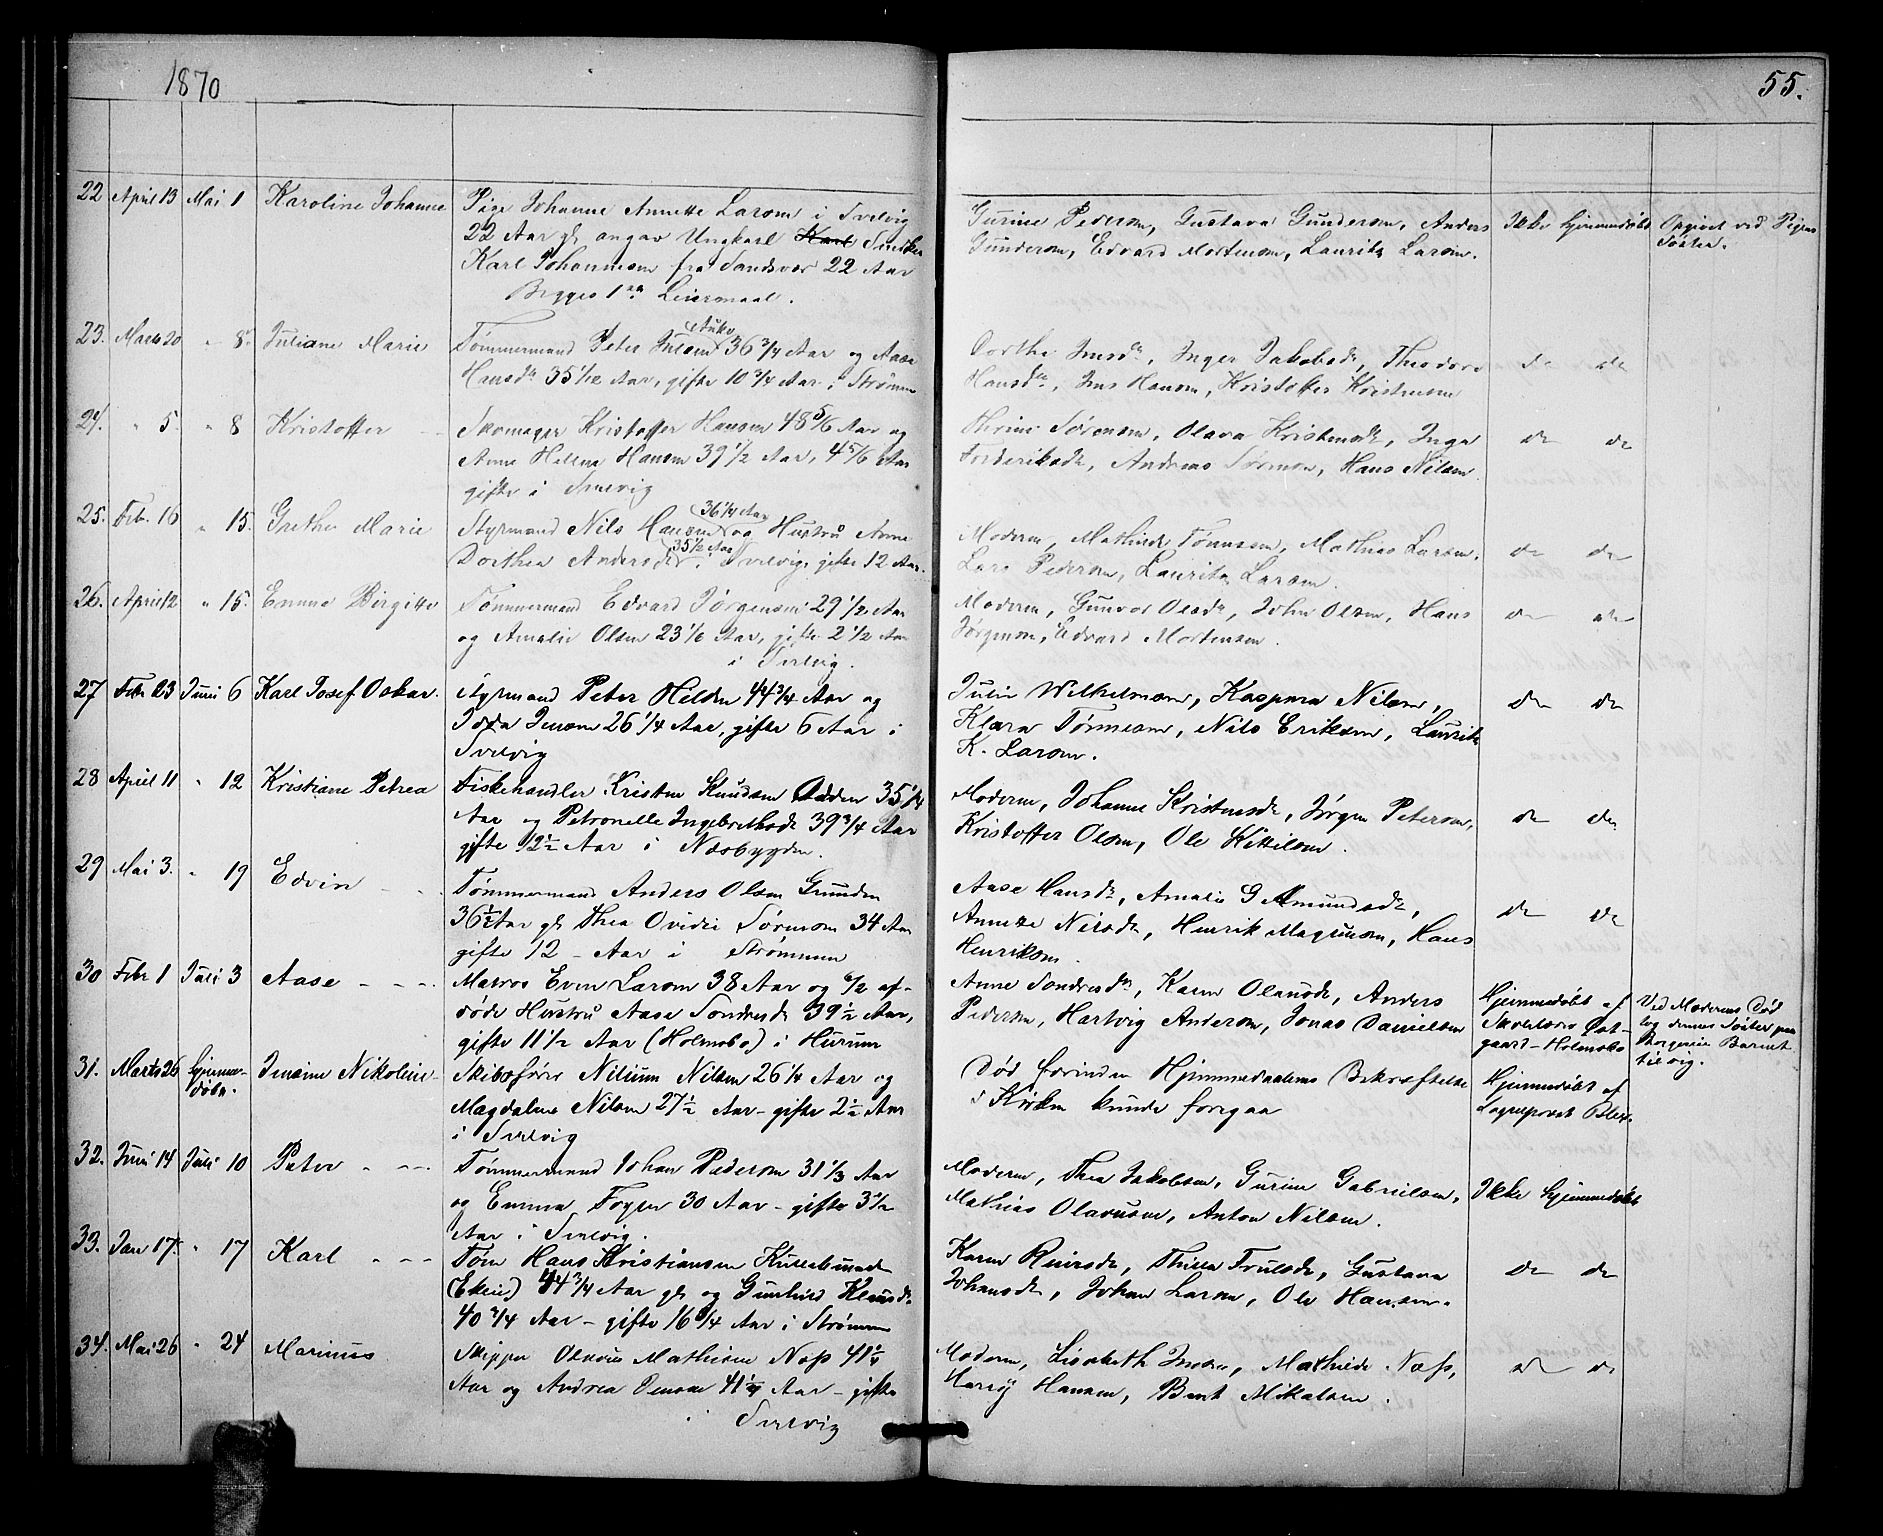 1870
55.
22 April 13 Mai 1 Karoline Johanne Pige Johanne Annette Larsen i Svelvig
22 Aar gl. angav Ungkarl Snedker
Karl Johannesen fra Sandsvær 22 Aar
Begges 1ste Leiermaal.
Gurine Pedersen, Gustava Gundersen, Anders
Gundersen, Edvard Mortensen, Lauritz Larsen.
Ikke hjemmedøbt
Opgivet ved Pigens
Søster.
23. Marts 20 " 8. Juliane Marie Tømmermand Peter Jensen 36 3/4 Aar og Aase
Hansdr 35 1/12 Aar, gifte 10 3/4 Aar i Strømm
Dorthe Jensdr, Inger Jakobsdr, Theodore
Hansdr, Jens Hansen, Kristoffer Kristensen
do do
24. " 5. " 8 Kristoffer Skomager Kristoffer Hansen 48 5/6 Aar og
Anne Helene Hansen 39 1/2 Aar, 4 5/6 Aar
gifte i Svelvig
Thrine Sørensen, Olava Kristensdr, Inga
Frederiksdr, Andreas Sørensen, Hans Nilsen
do do
25. Feb. 16 " 15. Grethe Marie Styrmand Nils Hansen 36 1/4 Aar og Hustru Anne
Dorthea Andersdr 35 1/2 Aar i Svelvig, gifte 12 Aar.
Moderen, Mathilde Tønnesen, Mathias Larsen,
Lars Pedersen, Lauritz Larsen.
do do
26. April 12 " 15. Emma Birgitte Tømmermand Edvard Jørgensen 29 1/2 Aar
og Amalie Olsen 23 1/6 Aar, gifte 2 1/2 Aar
i Svelvig.
Moderen, Gunvor Olsdr, John Olsen, Hans
Jørgensen, Edvard Mortensen.
do do
27 Feb 23 Juni 6 Karl Josef Oskar. Styrmand Peter Helden 44 3/4 Aar og
Jensen 26 1/4 Aar, gifte 6 Aar i
Svelvig
Julie Wilhelmsen, Kaspara Nilsen,
Klara Tønnesen, Nils Eriksen, Lauritz
K. Larsen.
do do
28 April 11 " 12 Kristiane Petrea Fiskehandler Kristen Knudsen Odden 35 1/4
Aar og Petronelle Ingebretsdr 39 3/4 Aar
gifte 12 1/2 Aar i Næsbygden.
Moderen, Johanne Kristensdr, Jørgen Petersen,
Kristoffer Olsen, Ole Kittilsen.
do do
29 Mai 3. " 19 Edvin Tømmermand Anders Olsen Grunden
36 1/2 Aar gl. Thea Ovidie Sørensen 34 Aar
gifte 12 - Aar i Strømmen
Aase Hansdr, Amalie G Amundsdr,
Annette Nilsdr, Henrik Magnusen, Hans
Henriksen.
do do
30 Febr 1 Juli 3 Aase Matros Even Larsen 38 Aar og 6/2 af-
døde Hustru Aase Sondresdr 39 1/2 Aar,
gifte 11 1/2 Aar (Holmsbo) i Hurum
Anne Sondresdr, Karen Olausdr, Anders
Pedersen, Hartvig Andersen, Jonas Danielsen
Hjemmedøbt af
Skolelærer Øst-
gaard - Holmsbo
Ved Moderens Død
tog dennes Søster paa
Barnet
til sig.
31. Marts 26 hjemme-
døbt. Jensine Nikoline Skibsfører Nilsen 26 1/4 Aar og
Magdalene Nilsen 27 1/2 Aar - gifte 2 1/2 Aar
i Svelvig
Død forinden Hjemmedaabens Bekræftelse
i Kirken kunde foregaa
Hjemmedøbt af
Sogneprest
32. Juni 14 Juli 10 Peter Tømmermand Johan Pedersen 31 1/3 Aar
og Emma Foger 30 Aar - gifte 3 1/2
Aar i Svelvig.
Moderen, Thea Jakobsen, Gurine Gabrielsen,
Mathias Olavesen, Anton Nilsen.
Ikke hjemmedøbt
33. Jan 17 " 17 Karl Tøm Hans Kristiansen
(Ekeie) 44 3/4 Aar gl. og Gunhild Klausdr
40 3/4 Aar - gifte 16 1/4 Aar i Strømmen
Karen Reiersdr, Thilla Trulsdr, Gustava
Johansdr, Johan Larsen, Ole Hansen.
do do
34. Mai 26 " 24 Marinus Skipper Olavus Mathisen Næss 41 1/4
Aar og Andrea Jensen 41 1/4 Aar - gifte
i Svelvig
Moderen, Lisabeth Jensen, Mathilde Næss,
Hansen, Bernt Mikalsen.
do do